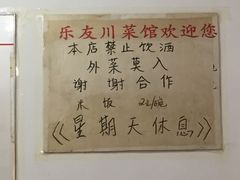 乐友川菜馆欢迎您
本店禁止饮酒
外菜莫入
谢谢合作
米饭 2元/碗
《星期天休息》